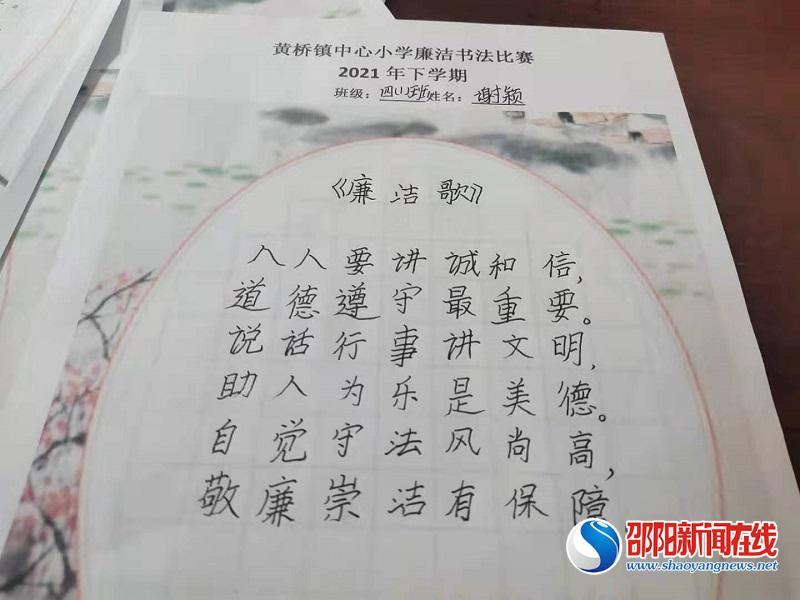 黄桥镇中心小学廉洁书法比赛
2021年下学期
班级：四(1)班姓名：谢颖
《廉洁歌》
人人要讲诚和信，
道德遵守最重要。
说话行事讲文明，
助人为乐是美德。
自觉守法风尚高，
敬廉崇洁有保障
邵阳新闻在线
www.shaoyangnews.net